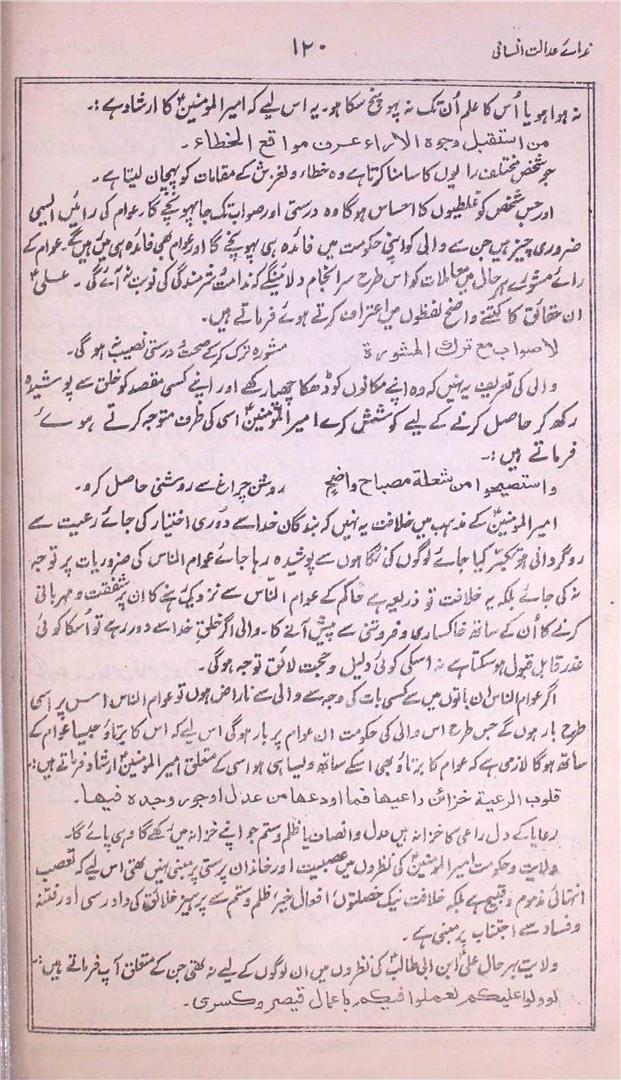 ندائے عدالت انسانی
۱۲۰
نہ ہوا ہو یا اُس کا علم اُن تک نہ پہونچ سکا ہو۔ یہ اس لیے کہ امیرالمؤمنینؑ کا ارشاد ہے :۔
من استقبل وجوہ الآراء عرف مواقع الخطاء۔
جو شخص مختلف رایوں کا سامنا کرتا ہے وہ خطاء ولغزش کے مقامات کو پہچان لیتا ہے۔
اور جس شخص کو غلطیوں کا احساس ہوگا وہ درستی اور صواب تک جا پہونچے گا، عوام کی رائیں ایسی
ضروری چیز ہیں جن سے والی کو اپنی حکومت میں فائدہ ہی پہونچے گا اور عوام بھی فائدہ ہی میں رہیں گے۔ عوام کے
رائے مشورے ہر حال میں معاملات کو اس طرح سرانجام دلائینگے کہ ندامت و شرمندگی کی نوبت نہ آئے گی۔ علیؑ
ان حقائق کا کتنے واضح لفظوں میں اعتراف کرتے ہوئے فرماتے ہیں۔
لاصواب مع ترك المشورة مشورہ ترک کرکے صحت و درستی نصیب نہ ہوگی۔
والی کی تعریف یہ نہیں کہ وہ اپنے مکانوں کو ڈھکا چھپا رکھے اور اپنے کسی مقصد کو خلق سے پوشیدہ
رکھ کر حاصل کرنے کے لیے کوشش کرے امیرالمؤمنینؑ اسی کی طرف متوجہ کرتے ہوئے
فرماتے ہیں :۔
واستصبحوا من شعلة مصباح واضح روشن چراغ سے روشنی حاصل کرو۔
امیرالمؤمنینؑ کے مذہب میں خلافت یہ نہیں کہ بندگان خدا سے دُوری اختیار کی جائے رعیت سے
روگردانی ہو تکبّر کیا جائے لوگوں کی نگاہوں سے پوشیدہ رہا جائے عوام الناس کی ضروریات پر توجہ
نہ کی جائے بلکہ یہ خلافت تو ذریعہ ہے حاکم کے عوام النّاس سے نزدیک ہونے کا ان پر شفقت و مہربانی
کرنے کا اُن کے ساتھ خاکساری و فروتنی سے پیش آنے کا۔ والی اگر خلقِ خدا سے دور رہے تو اُسکا کوئی
عذر قابل قبول ہوسکتا ہے نہ اسکی کوئی دلیل و حجت لائق توجہ ہوگی۔
اگر عوام الناس ان باتوں میں سے کسی بات کی وجہ سے والی سے ناراض ہوں تو عوام الناس اس پر اسی
طرح بار ہوں گے جس طرح اس والی کی حکومت ان عوام پر بار ہوگی اس لیے کہ اس کا برتاؤ جیسا عوام کے
ساتھ ہوگا لازمی ہے کہ عوام کا برتاؤ بھی اسکے ساتھ ویسا ہی ہو اسی کے متعلق امیرالمؤمنینؑ ارشاد فرماتے ہیں:۔
قلوب الرعية خزائن داعيها فما اودعها من عدل اوجور وجده فيها۔
رعایا کے دل راعی کا خزانہ ہیں عدل و انصاف یا ظلم و ستم جو اپنے خزانہ میں رکھے گا وہی پائے گا۔
ولایت و حکومت امیرالمؤمنینؑ کی نظروں میں عصبیت اور خاندان پرستی پر مبنی نہیں تھی اس لیے کہ تعصب
انتہائی مذموم و قبیح ہے بلکہ خلافت نیک خصلتوں افعال خیر، ظلم و ستم سے پرہیز خلائق کی داد رسی اور فتنہ
و فساد سے اجتناب پر مبنی ہے۔
ولایت بہر حال علیؑ ابن ابی طالبؑ کی نظروں میں ان لوگوں کے لیے نہ تھی جن کے متعلق آپ فرماتے ہیں:۔
لو ولوا عليكم لعملوا فيكم باعمال قيصر وكسرى۔